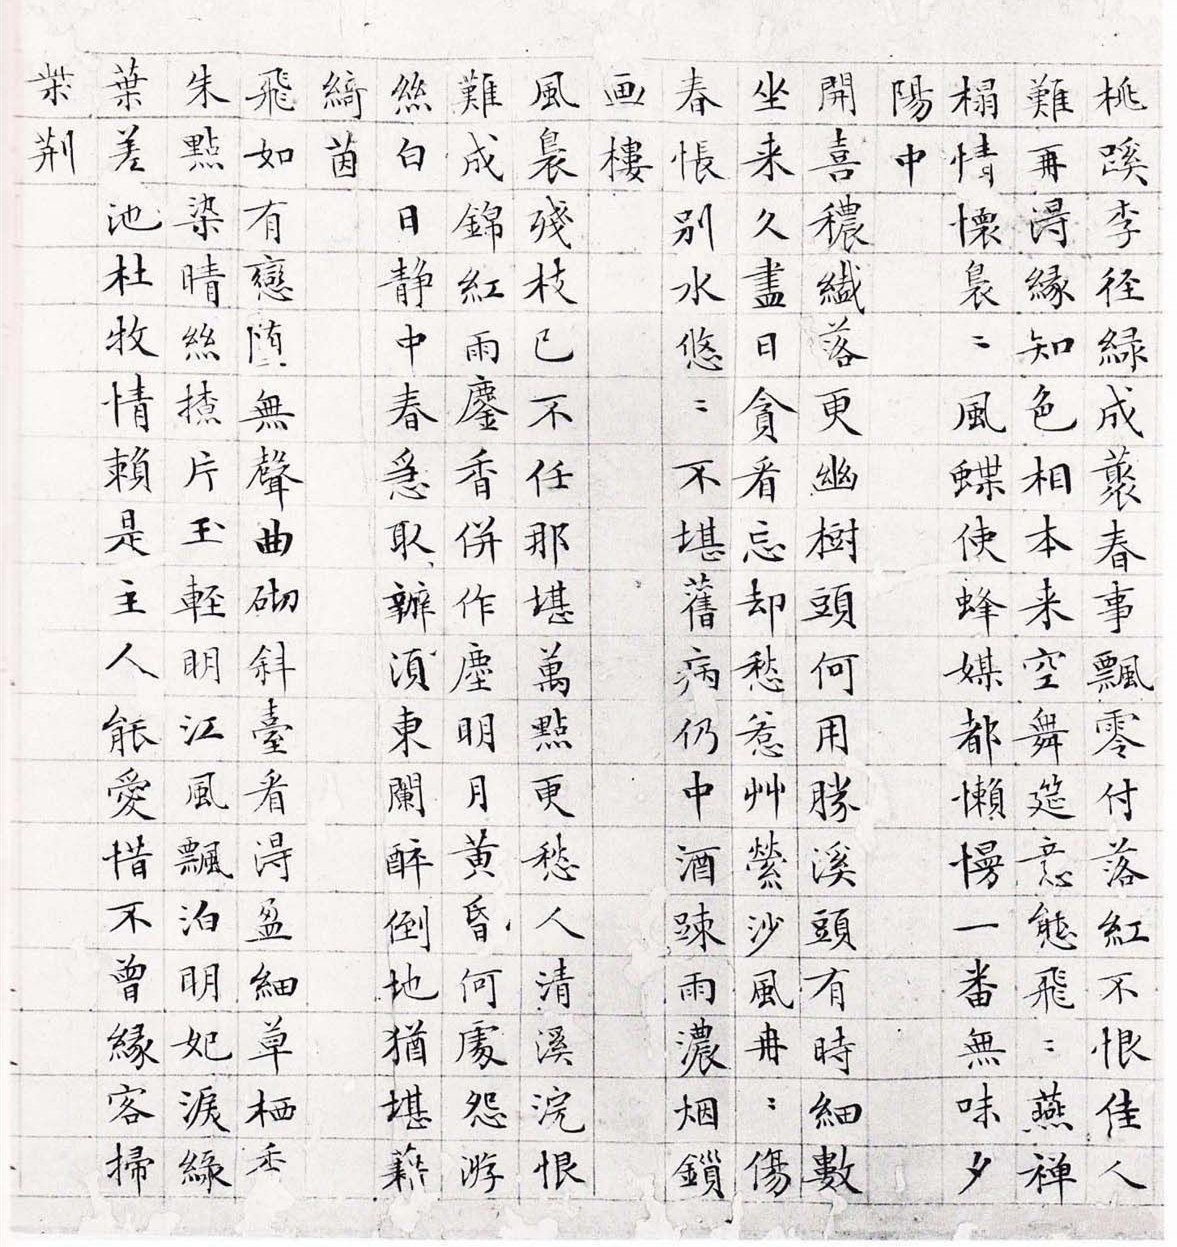 桃蹊李径綠成叢春事飄零付落紅不恨佳人
難再淂緣知色相本来空舞筵意態飛〻燕禅
榻情懷裊〻風蝶使蜂媒都懶慢一番無味夕
陽中
開喜穠纖落更幽樹頭何用勝溪頭有時細數
坐来久盡日貪看忘却愁惹艸縈沙風冉〻傷
春悵别水悠〻不堪舊病仍中酒疎雨濃烟鎖
画樓
風裊殘枝已不任那堪萬點更愁人清溪浣恨
難成錦紅雨鏖香併作塵明月黄昏何處怨游
絲白日静中春急取辦湏東闌醉倒地猶堪藉
綺茵
飛如有戀堕無聲曲砌斜臺看淂盈細草栖香
朱點染晴絲揸片玉輕明江風飄泊明妃淚綠
葉差池杜牧情賴是主人能愛惜不曾緣客掃
柴荆